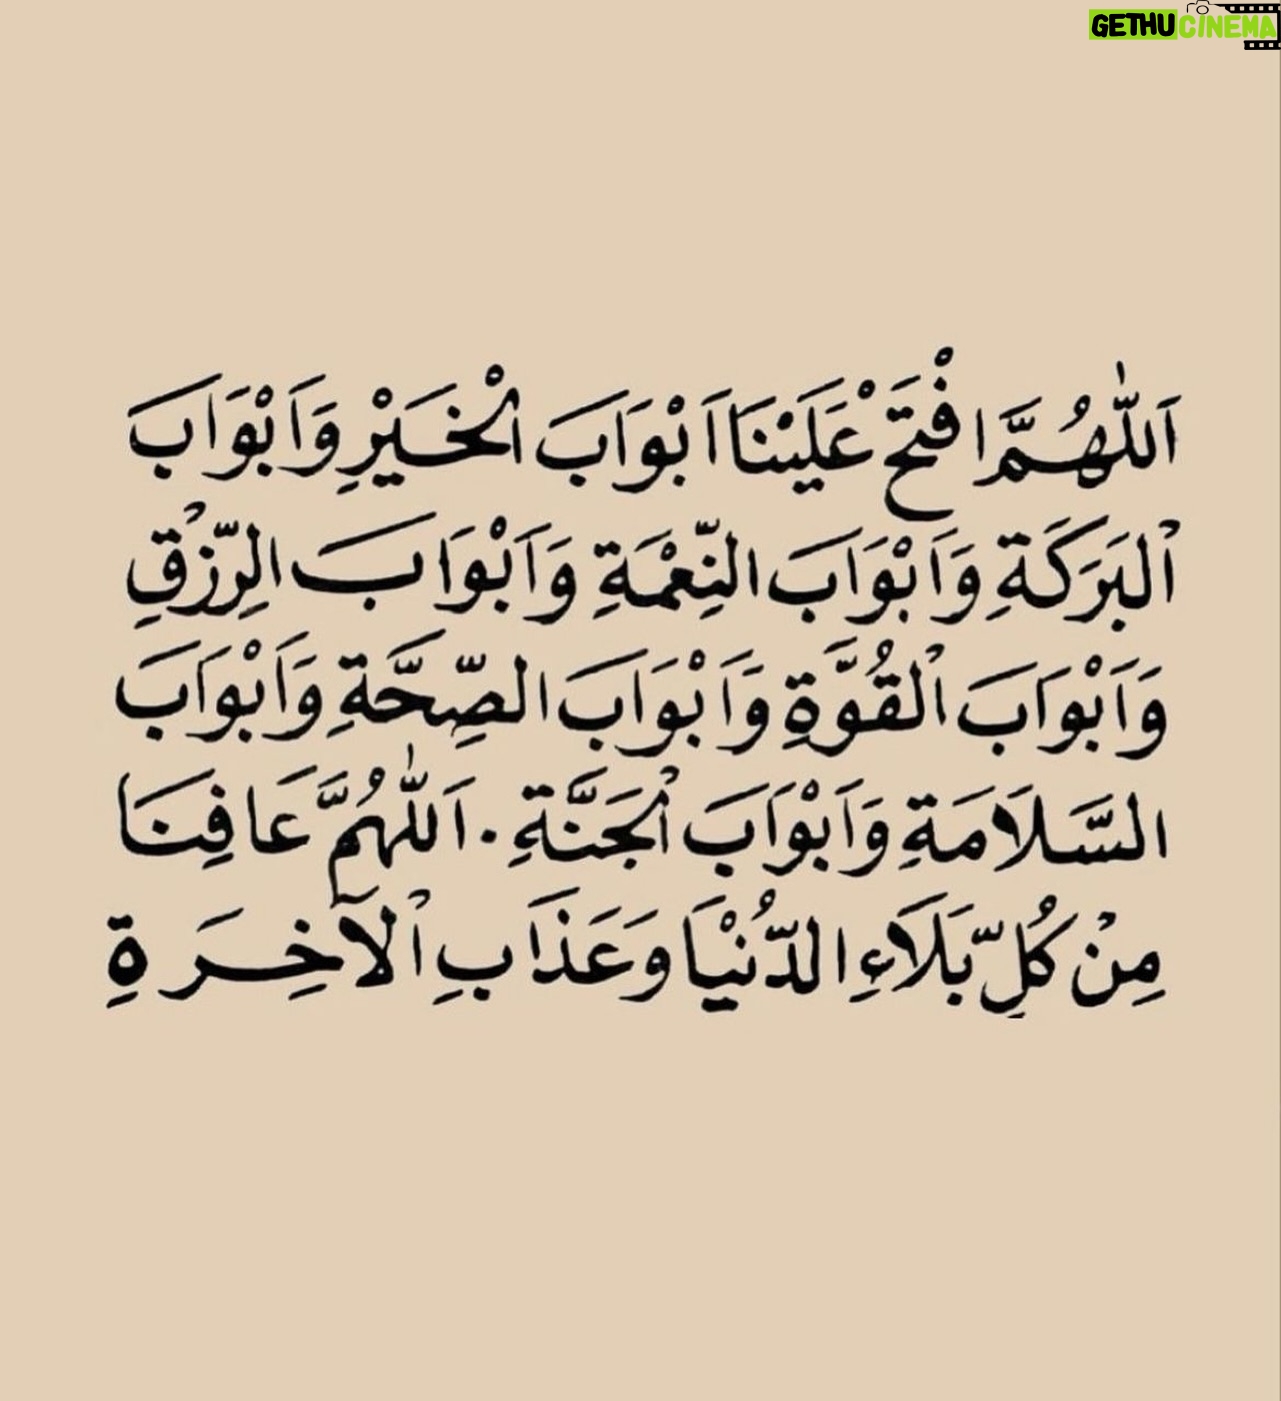 GETHUCINEMA
اَللّٰهُمَّ افْتَحْ عَلَيْنَا اَبْوَابَ الْخَيْرِ وَاَبْوَابَ
الْبَرَكَةِ وَاَبْوَابَ النِّعْمَةِ وَاَبْوَابَ الرِّزْقِ
وَاَبْوَابَ الْقُوَّةِ وَاَبْوَابَ الصِّحَّةِ وَاَبْوَابَ
السَّلَامَةِ وَاَبْوَابَ الْجَنَّةِ . اَللّٰهُمَّ عَافِنَا
مِنْ كُلِّ بَلَاءِ الدُّنْيَا وَعَذَابِ الْآخِرَةِ